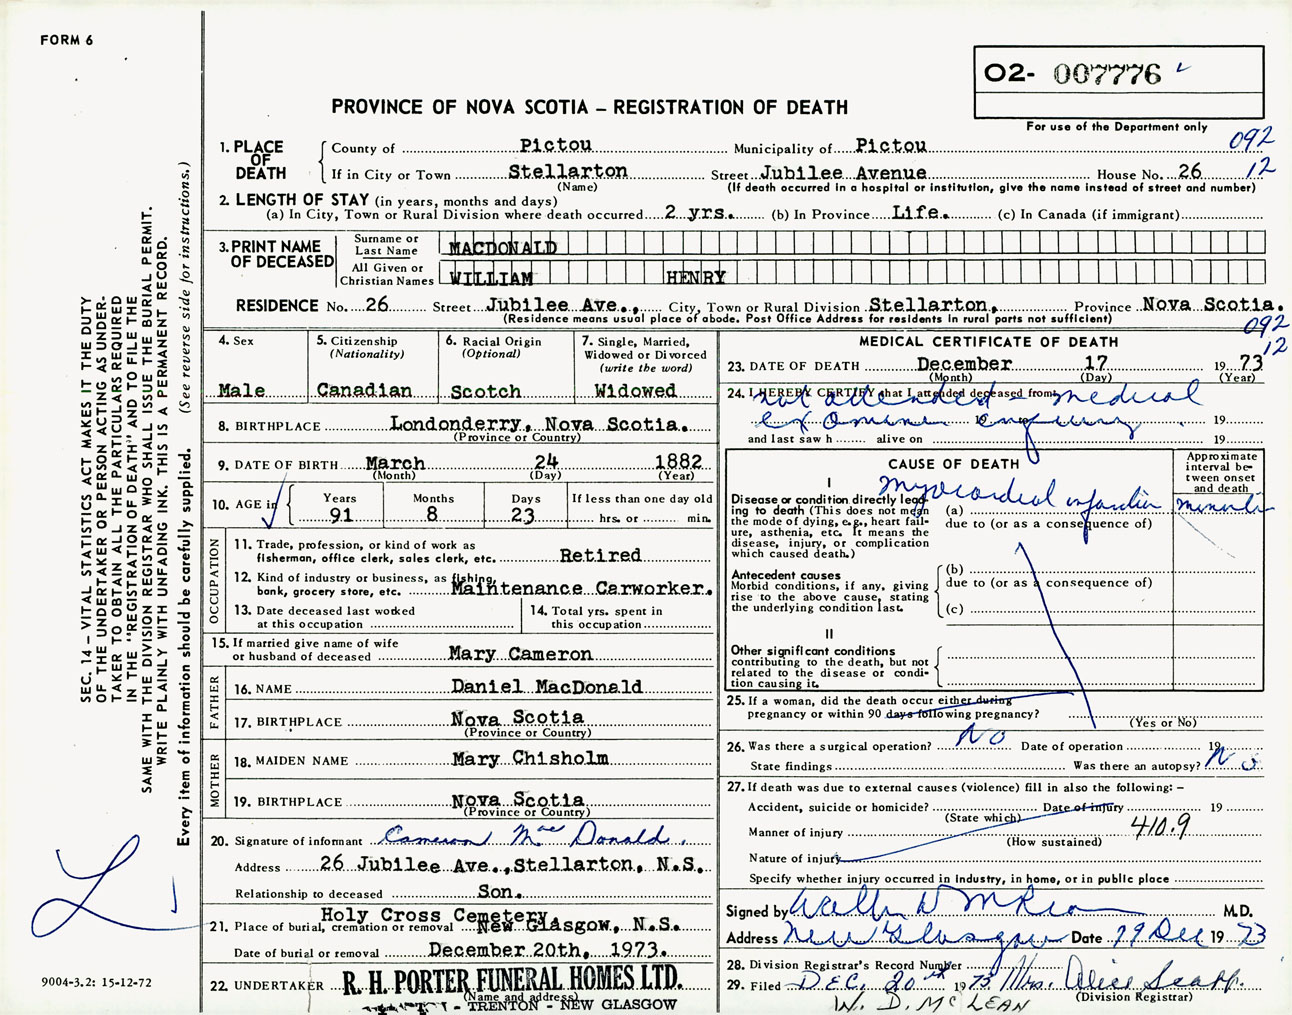 FORM 6
O2- 007776
PROVINCE OF NOVA SCOTIA – REGISTRATION OF DEATH
For use of the Department only
092
12
1. PLACE OF DEATH
County of Pictou Municipality of Pictou
If in City or Town Stellarton Street Jubilee Avenue House No. 26
(Name) (If death occurred in a hospital or institution, give the name instead of street and number)
2. LENGTH OF STAY (in years, months and days)
(a) In City, Town or Rural Division where death occurred 2 yrs. (b) In Province Life. (c) In Canada (if immigrant)
3. PRINT NAME OF DECEASED
Surname or Last Name MACDONALD
All Given or Christian Names WILLIAM HENRY
RESIDENCE No. 26 Street Jubilee Ave., City, Town or Rural Division Stellarton, Province Nova Scotia.
(Residence means usual place of abode. Post Office Address for residents in rural parts not sufficient)
092
12
4. Sex Male
5. Citizenship (Nationality) Canadian
6. Racial Origin (Optional) Scotch
7. Single, Married, Widowed or Divorced (write the word) Widowed
8. BIRTHPLACE Londonderry, Nova Scotia.
(Province or Country)
9. DATE OF BIRTH March 24 1882
(Month) (Day) (Year)
10. AGE in
Years 91 Months 8 Days 23 If less than one day old
hrs. or min.
OCCUPATION
11. Trade, profession, or kind of work as fisherman, office clerk, sales clerk, etc. Retired
12. Kind of industry or business, as fishing, bank, grocery store, etc. Maintenance Carworker.
13. Date deceased last worked at this occupation
14. Total yrs. spent in this occupation
15. If married give name of wife or husband of deceased Mary Cameron
FATHER
16. NAME Daniel MacDonald
17. BIRTHPLACE Nova Scotia
(Province or Country)
MOTHER
18. MAIDEN NAME Mary Chisholm
19. BIRTHPLACE Nova Scotia
(Province or Country)
20. Signature of informant Cameron MacDonald.
Address 26 Jubilee Ave., Stellarton, N.S.
Relationship to deceased Son.
21. Place of burial, cremation or removal Holy Cross Cemetery, New Glasgow, N.S.
Date of burial or removal December 20th, 1973.
22. UNDERTAKER R. H. PORTER FUNERAL HOMES LTD.
(Name and address)
- TRENTON - NEW GLASGOW
MEDICAL CERTIFICATE OF DEATH
23. DATE OF DEATH December 17 1973
(Month) (Day) (Year)
24. I HEREBY CERTIFY that I attended deceased from
not attended - medical
19 to 19
and last saw h alive on 19
CAUSE OF DEATH
Approximate interval between onset and death
I
Disease or condition directly leading to death (This does not mean the mode of dying, e.g., heart failure, asthenia, etc. It means the disease, injury, or complication which caused death.)
(a) myocardial infarction
due to (or as a consequence of)
Antecedent causes
Morbid conditions, if any, giving rise to the above cause, stating the underlying condition last.
(b)
due to (or as a consequence of)
(c)
II
Other significant conditions
contributing to the death, but not related to the disease or condition causing it.
25. If a woman, did the death occur either during pregnancy or within 90 days following pregnancy?
(Yes or No)
26. Was there a surgical operation? No Date of operation 19
State findings Was there an autopsy? No
27. If death was due to external causes (violence) fill in also the following: –
Accident, suicide or homicide? Date of injury 19
(State which)
Manner of injury 410.9
(How sustained)
Nature of injury
Specify whether injury occurred in Industry, in home, or in public place
Signed by M.D.
Address New Glasgow Date 19 Dec 1973
28. Division Registrar's Record Number
29. Filed DEC. 20th 1973 Mrs. Alice
(Division Registrar)
W. D. McLEAN
SEC. 14 – VITAL STATISTICS ACT MAKES IT THE DUTY
OF THE UNDERTAKER OR PERSON ACTING AS UNDERTAKER TO OBTAIN ALL THE PARTICULARS REQUIRED
IN THE "REGISTRATION OF DEATH" AND TO FILE THE
SAME WITH THE DIVISION REGISTRAR WHO SHALL ISSUE THE BURIAL PERMIT.
WRITE PLAINLY WITH UNFADING INK. THIS IS A PERMANENT RECORD.
Every item of information should be carefully supplied. (See reverse side for instructions.)
9004-3.2: 15-12-72